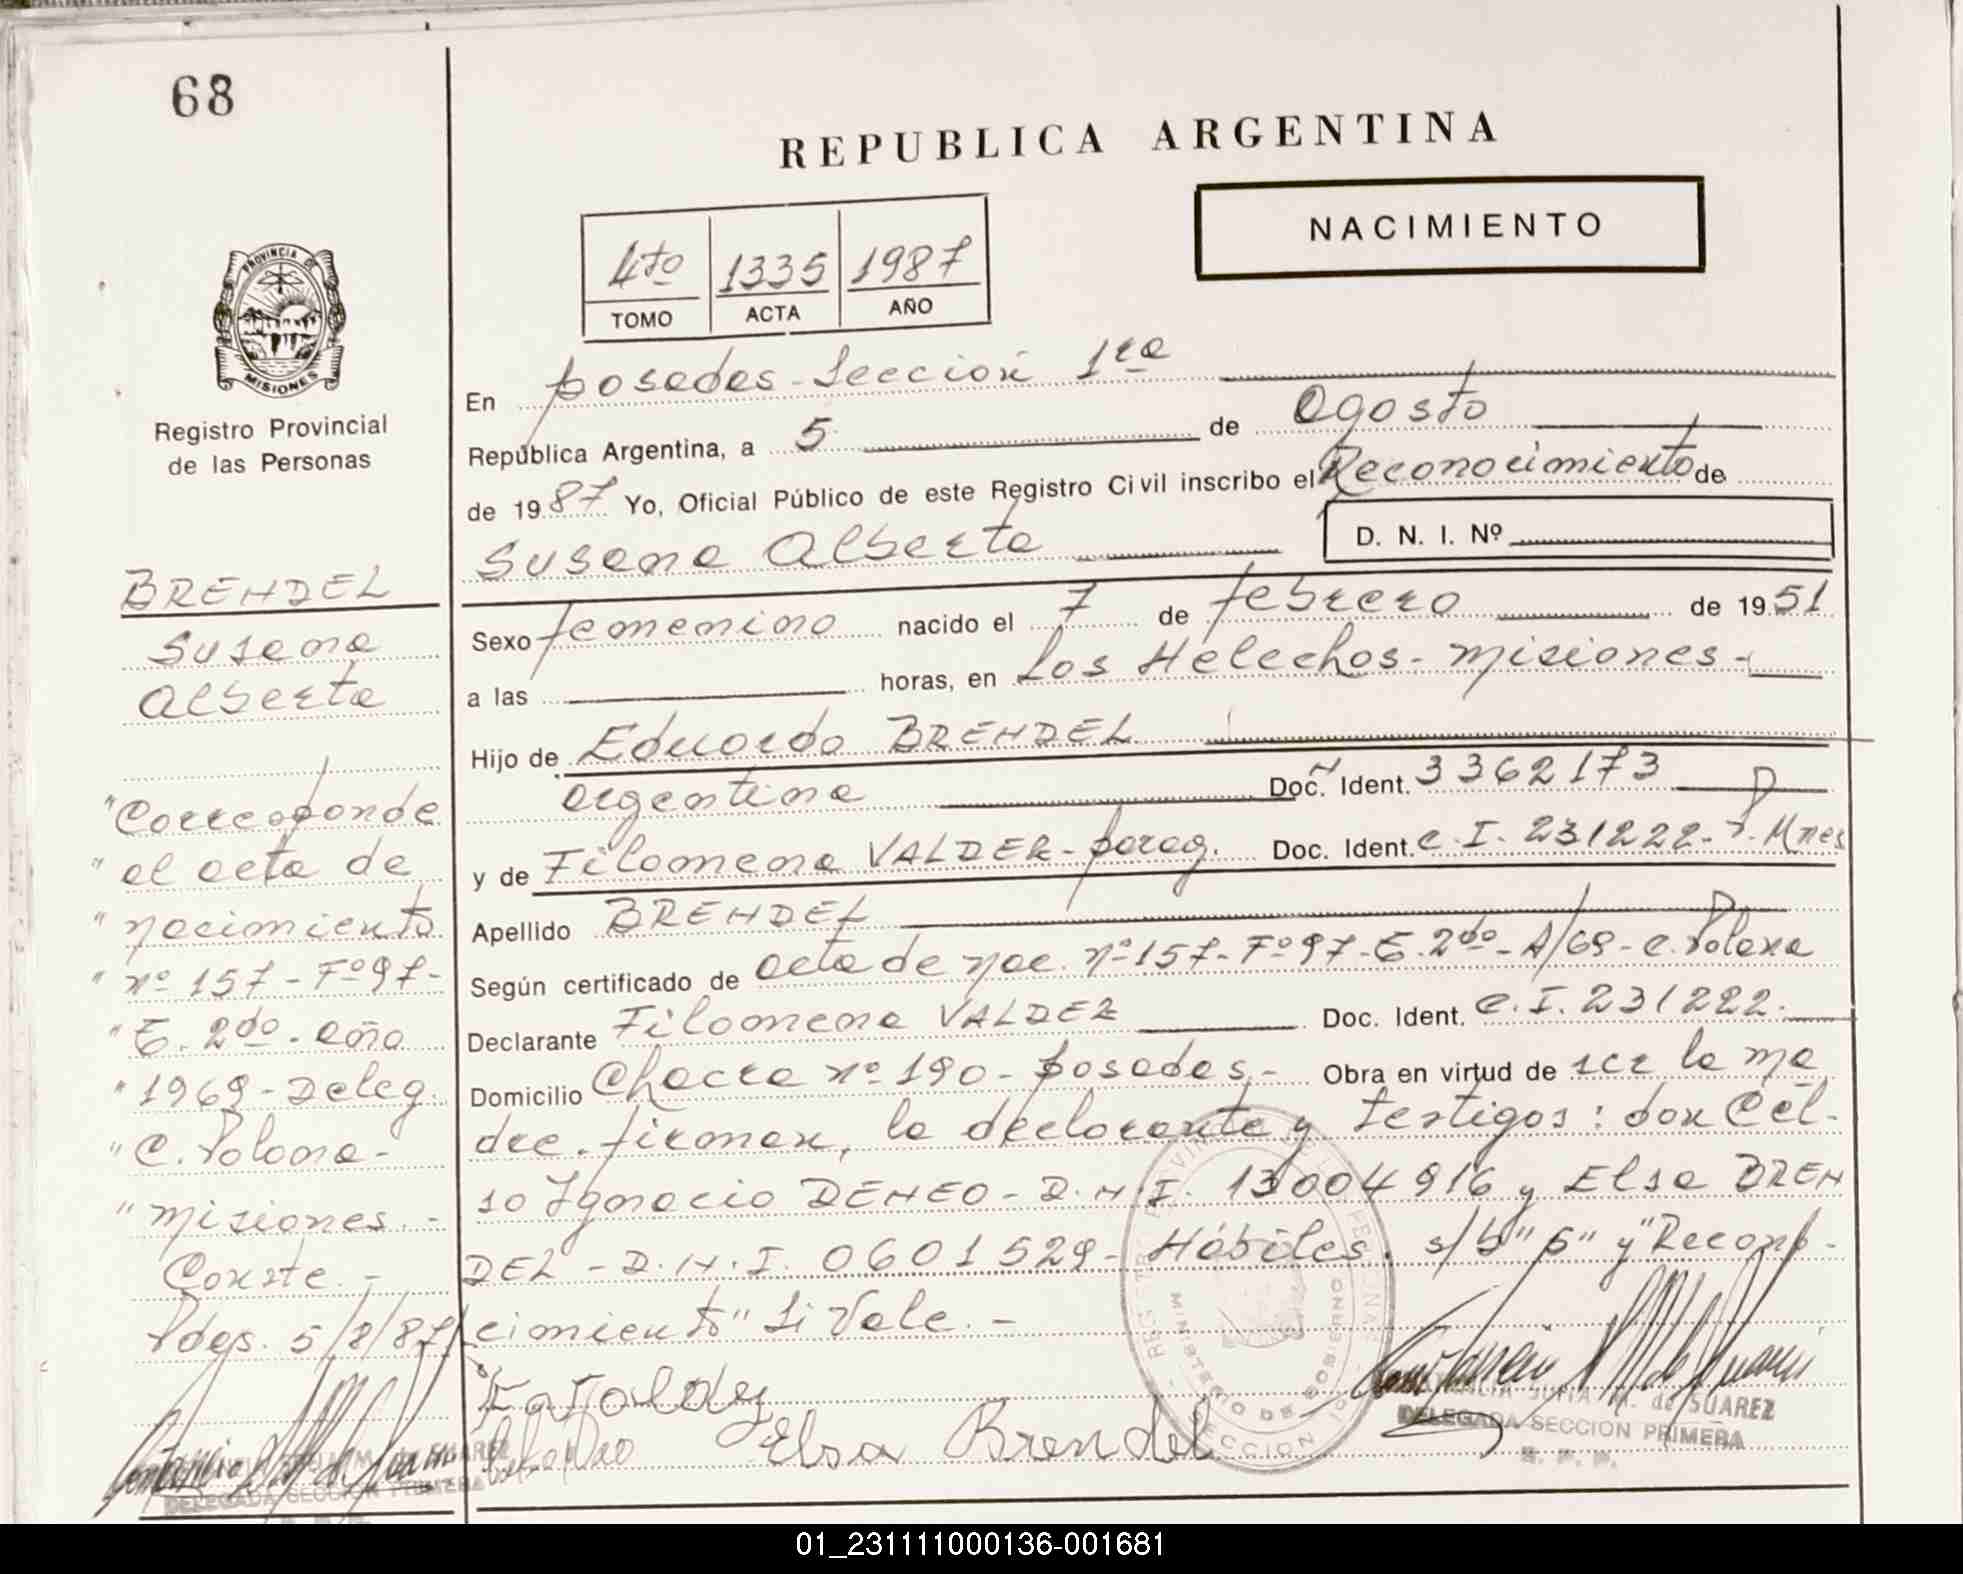 68
REPUBLICA ARGENTINA
NACIMIENTO
4to 1335 1987
TOMO ACTA AÑO
PROVINCIA DE
MISIONES
Registro Provincial
de las Personas
En posadas - Sección 1ra
República Argentina, a 5 de Agosto
de 1987 Yo, Oficial Público de este Registro Civil inscribo el Reconocimiento de
Susana Alberta D. N. I. Nº
Sexo femenino nacido el 7 de febrero de 1951
a las horas, en Los Helechos - misiones -
Hijo de Eduardo BRENDEL
argentina Doc. Ident. 3362173
y de Filomena VALDEZ - parag. Doc. Ident. C. I. 231222 - P. Mnes
Apellido BRENDEL
Según certificado de acta de nac. nº 157 - Fº 97 - T. 2do - A/69 - C. Polana
Declarante Filomena VALDEZ Doc. Ident. C. I. 231222. -
Domicilio Chacra nº 190 - posadas. - Obra en virtud de ser la ma
dre. firman, la declarante y testigos: don Cel-
so Ignacio DENEO - D.N.I. 13004916 y Elsa BREN
DEL - D.N.I. 0601529 - Hábiles. s/b "6" y "Recono-
cimiento" Si Vale. -
Elsa Brendel
BRENDEL
Susana
Alberta
"Corresponde
" al acta de
" nacimiento
" nº 157 - Fº 97 -
" T. 2do - año
" 1969 - Deleg.
" C. Polana -
" misiones. -
Conste. -
Pdas. 5/8/87
REGISTRO PROVINCIAL DE LAS PERSONAS
MINISTERIO DE GOBIERNO
SECCION 1º
M. de SUAREZ
DELEGADA SECCION PRIMERA
R. P. P.
DELEGADA SECCION PRIMERA
01_231111000136-001681